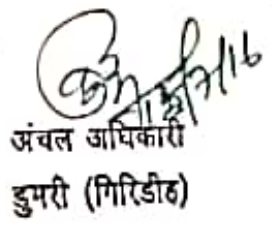 अंचल अधिकारी
डुमरी (गिरिडीह)